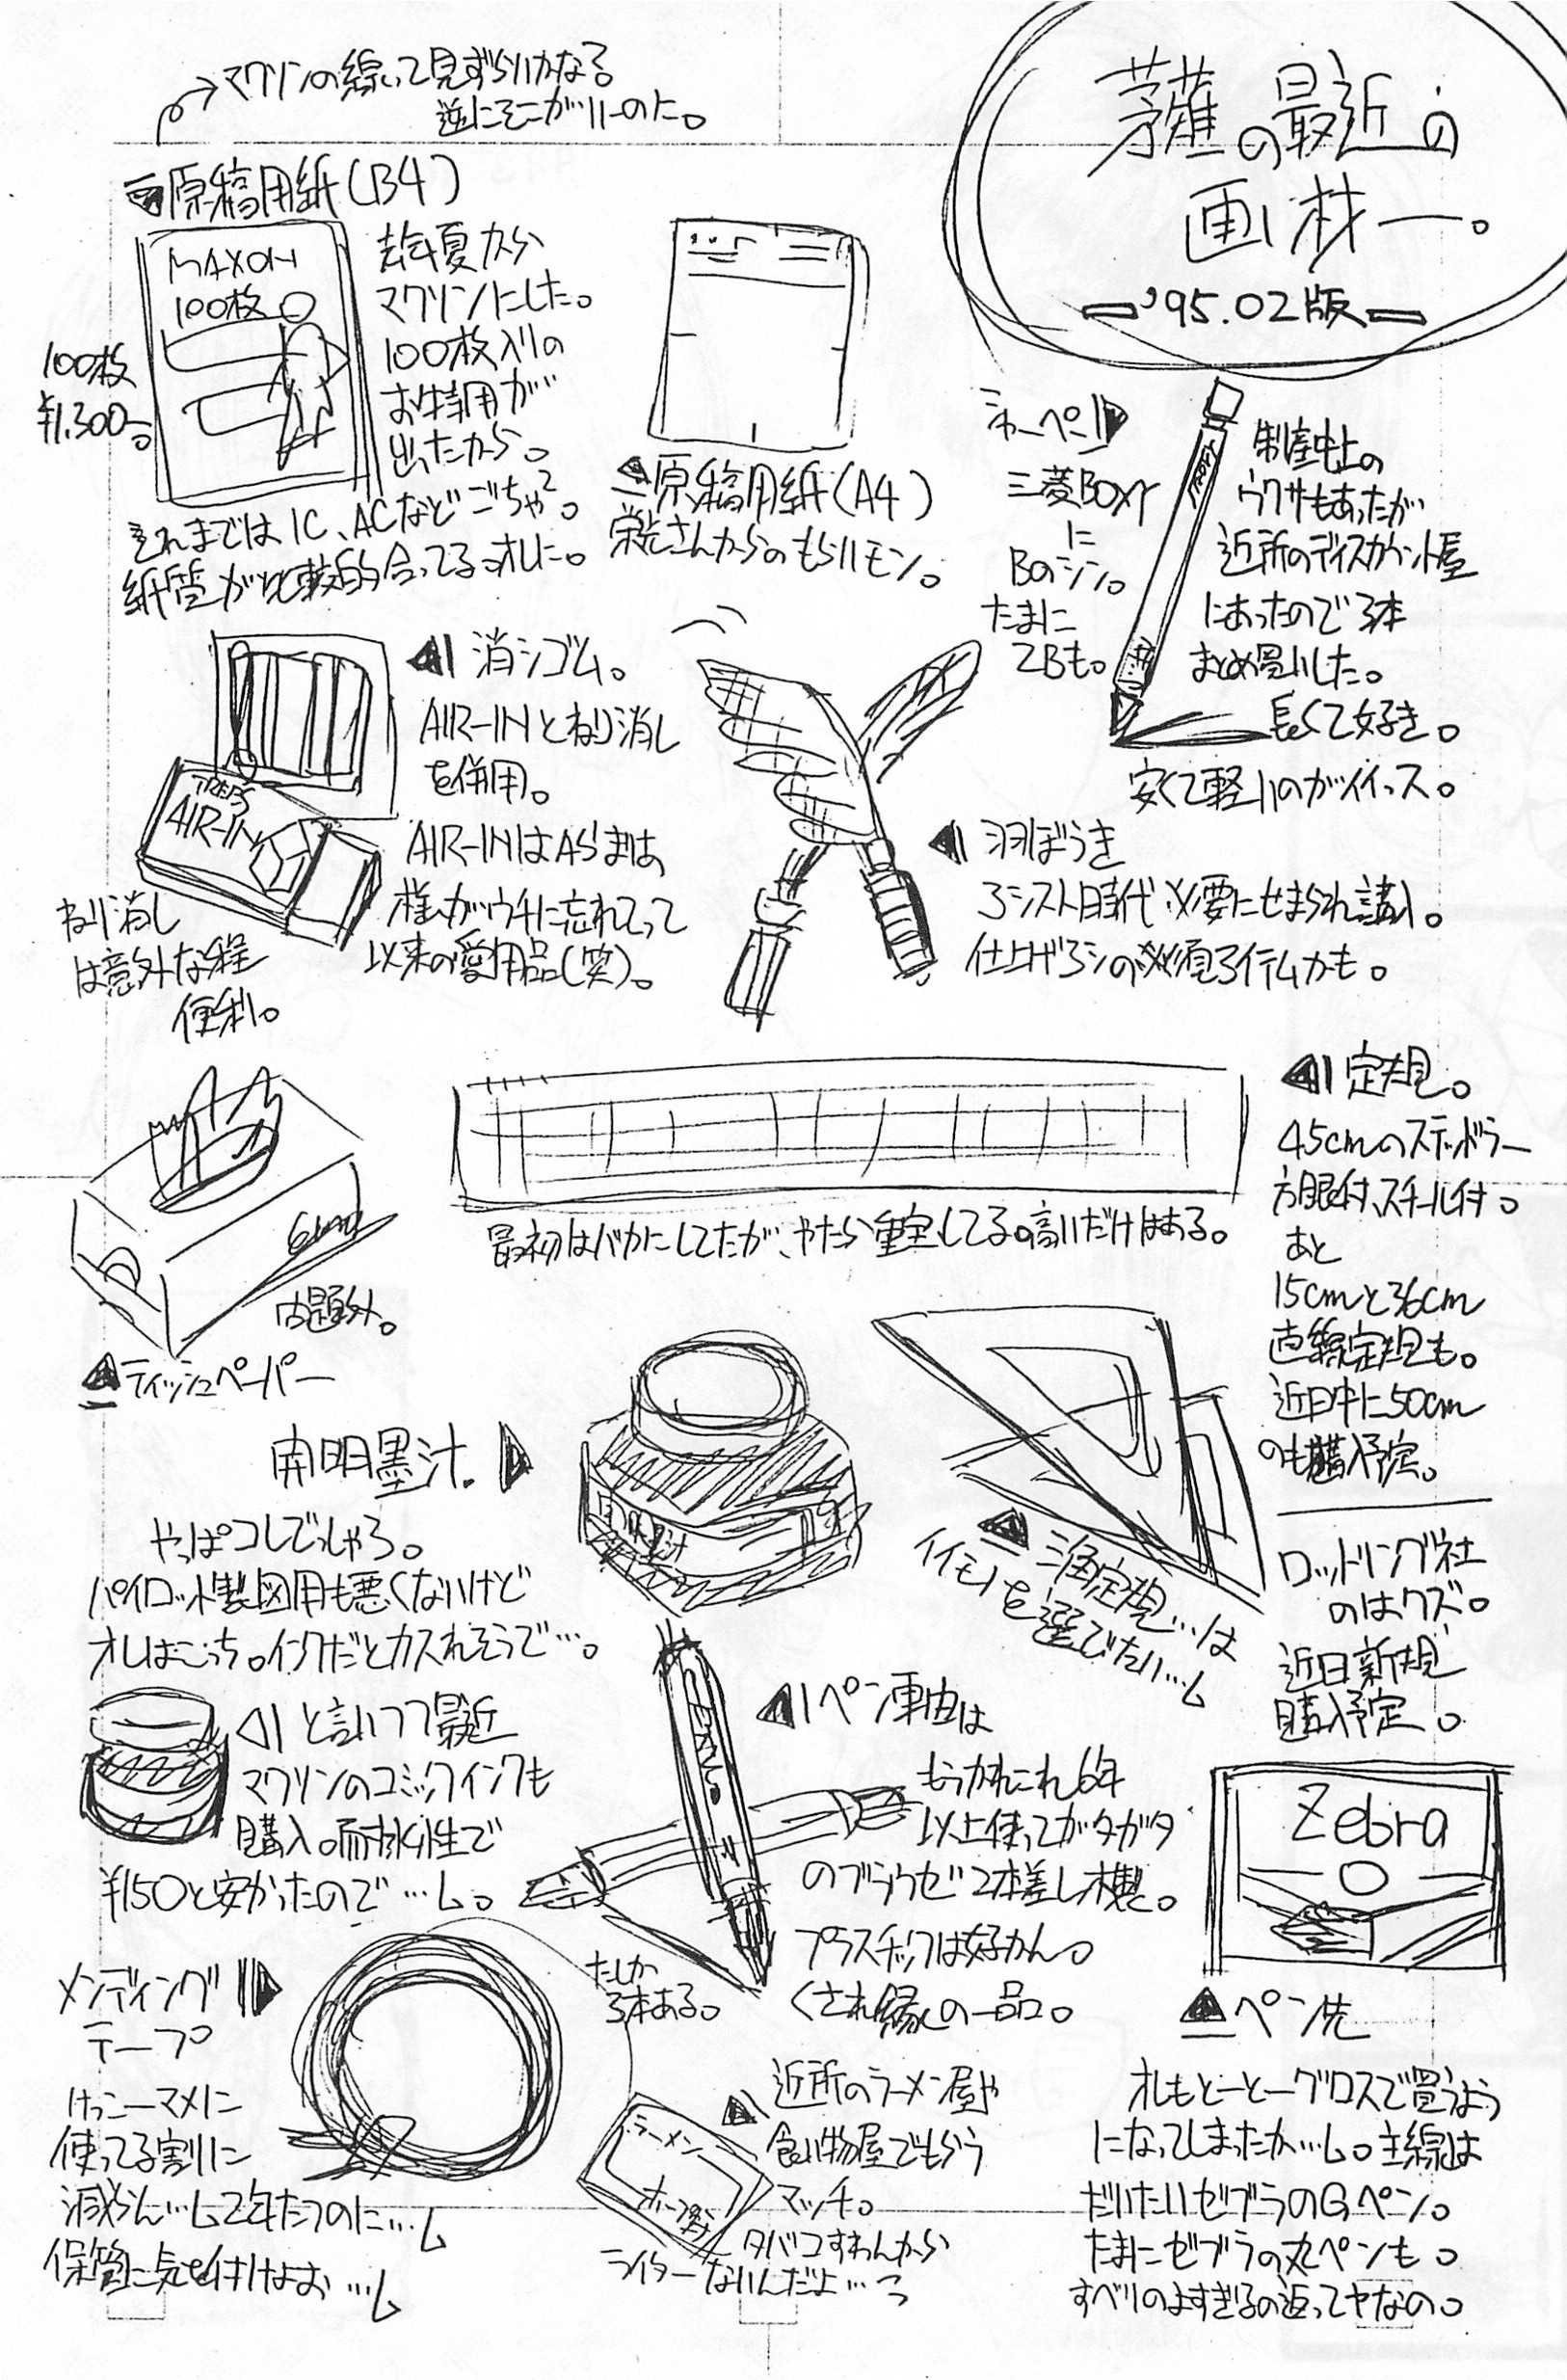 マクソンの線って見ずらいかなる。
逆にそこがいーのに。
の最近の
画材ー。
'95.02版
原稿用紙(B4)
MAXON
100枚
100枚
¥1.300-。
去年夏から
マクソンにした。
100枚入りの
お特用が
出たから。
それまではIC、ACなどごちゃ2。
紙質が比較的合ってる。オレに。
原稿用紙(A4)
栄光さんからのもらいモン。
シャーペン
三菱BOXY
に
Bのシン。
たまに
2Bも。
制産中止の
ウワサもあったが
近所のディスカウント屋
にあったので3本
まとめ買いした。
長くて好き。
安くて軽いのがイイッス。
消シゴム。
AIR-INとねり消し
を併用。
AIR-INは
様がウチに忘れてって
以来の愛用品(笑)。
AIR-IN
ねり消し
は意外な程
便利。
羽ぼうき
アシスト時代、必要にせまられ購入。
仕上げアシの必須アイテムかも。
定規。
45cmのステッドラー
方眼付、スチール付。
あと
15cmと36cm
直線定規も。
近日中に50cm
のも購入予定。
最初はバカにしてたが、やたら重宝してる。高いだけはある。
問題外。
ティッシュペーパー
開明墨汁。
やっぱコレでっしゃろ。
パイロット製図用も悪くないけど
オレはこっち。インクだとカスれそうで…。
三角定規…は
イイモノを選びたい…
ロットリング社
のはクズ。
近日新規
購入予定。
と言いつつ最近
マクソンのコミックインクも
購入。耐水性で
¥150と安かったので…。
ペン軸は
もうかれこれ6年
以上使ってガタガタ
のゼブラ2本差し木製。
プラスチックは好かん。
くされ縁の一品。
たしか
3本ある。
Zebra
ペン先
オレもとーとーグロスで買うよう
になってしまったか…。主線は
だいたいゼブラのGペン。
たまにゼブラの丸ペンも。
すべりのよすぎるの返ってヤなの。
メンディング
テープ
けっこーマメに
使ってる割に
減らん…2年たつのに…
保管に気を付けよお…
近所のラーメン屋や
食い物屋でもらう
マッチ。
タバコすわんから
ライターないんだよ…
ラーメン